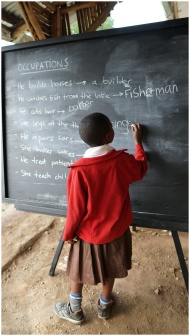 OCCUPATIONS
He builds houses → a builder
He catches fish from the lake → Fisherman
He cuts hair → barber
sings at the sing
He repairs cars
She
He treat patients
She teach child